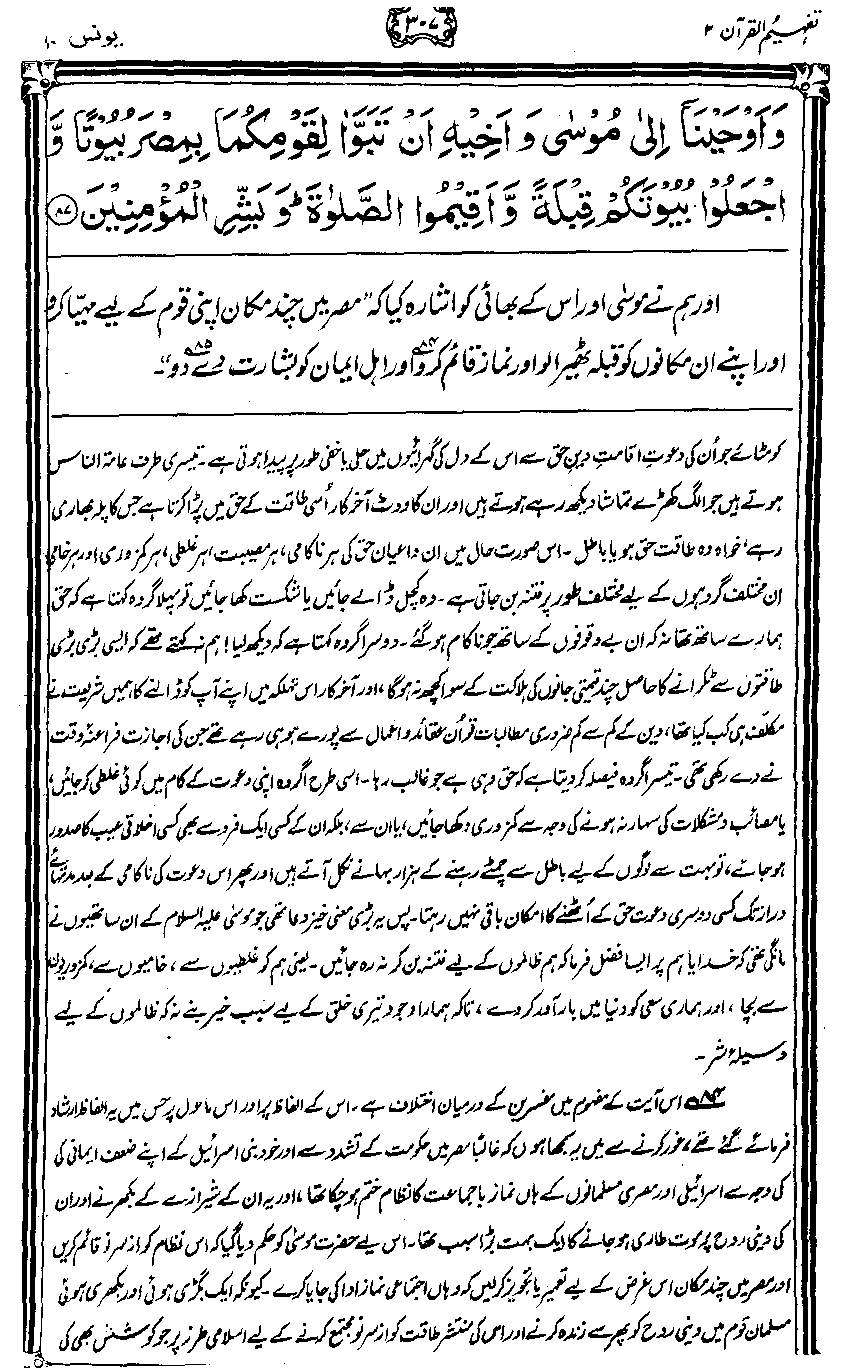 تفہیم القرآن ۲
۳۰۷
یونس ۱۰
وَاَوْحَيْنَآ اِلٰى مُوْسٰى وَاَخِيْهِ اَنْ تَبَوَّاٰ لِقَوْمِكُمَا بِمِصْرَ بُيُوْتًا وَّ
اجْعَلُوْا بُيُوْتَكُمْ قِبْلَةً وَّاَقِيْمُوا الصَّلٰوةَ ؕ وَبَشِّرِ الْمُؤْمِنِيْنَ ﴿۸۷﴾
اور ہم نے موسیٰ اور اس کے بھائی کو اشارہ کیا کہ ”مصر میں چند مکان اپنی قوم کے لیے مہیّا کرو
اور اپنے ان مکانوں کو قبلہ ٹھیرا لو اور نماز قائم کرو ۸۴ اور اہل ایمان کو بشارت دے دو ۸۵“۔
کو مٹائے جو اُن کی دعوتِ اقامتِ دینِ حق سے اس کے دل کی گہرائیوں میں جلی یا خفی طور پر پیدا ہوتی ہے۔ تیسری طرف عامۃ الناس
ہوتے ہیں جو الگ کھڑے تماشا دیکھ رہے ہوتے ہیں اور ان کا ووٹ آخر کار اُسی طاقت کے حق میں پڑا کرتا ہے جس کا پلہ بھاری
رہے، خواہ وہ طاقت حق ہو یا باطل۔ اس صورت حال میں ان داعیانِ حق کی ہر ناکامی، ہر مصیبت، ہر غلطی، ہر کمزوری اور ہر خامی
اِن مختلف گروہوں کے لیے مختلف طور پر فتنہ بن جاتی ہے۔ وہ کچل ڈالے جائیں یا شکست کھا جائیں تو پہلا گروہ کہتا ہے کہ حق
ہمارے ساتھ تھا نہ کہ ان بے وقوفوں کے ساتھ جو ناکام ہو گئے۔ دوسرا گروہ کہتا ہے کہ دیکھ لیا! ہم نہ کہتے تھے کہ ایسی بڑی بڑی
طاقتوں سے ٹکرانے کا حاصل چند قیمتی جانوں کی ہلاکت کے سوا کچھ نہ ہوگا، اور آخر کار اس تہلکہ میں اپنے آپ کو ڈالنے کا ہمیں شریعت نے
مکلّف ہی کب کیا تھا، دین کے کم سے کم ضروری مطالبات تو اُن عقائد و اعمال سے پورے ہو ہی رہے تھے جن کی اجازت فراعنۂ وقت
نے دے رکھی تھی۔ تیسرا گروہ فیصلہ کر دیتا ہے کہ حق وہی ہے جو غالب رہا۔ اسی طرح اگر وہ اپنی دعوت کے کام میں کوئی غلطی کر جائیں،
یا مصائب و مشکلات کی سہار نہ ہونے کی وجہ سے کمزوری دکھا جائیں، یا ان سے، بلکہ ان کے کسی ایک فرد سے بھی کسی اخلاقی عیب کا صدور
ہو جائے، تو بہت سے لوگوں کے لیے باطل سے چمٹے رہنے کے ہزار بہانے نکل آتے ہیں اور پھر اس دعوت کی ناکامی کے بعد مدتہائے
دراز تک کسی دوسری دعوت حق کے اُٹھنے کا امکان باقی نہیں رہتا۔ پس یہ بڑی معنی خیز دعا تھی جو موسیٰ علیہ السلام کے ان ساتھیوں نے
مانگی تھی کہ خدایا ہم پر ایسا فضل فرما کہ ہم ظالموں کے لیے فتنہ بن کر نہ رہ جائیں۔ یعنی ہم کو غلطیوں سے، خامیوں سے، کمزوریوں
سے بچا، اور ہماری سعی کو دنیا میں بار آور کر دے، تاکہ ہمارا وجود تیری خلق کے لیے سبب خیر بنے نہ کہ ظالموں کے لیے
وسیلۂ شر۔
۸۴ اس آیت کے مفہوم میں مفسرین کے درمیان اختلاف ہے۔ اس کے الفاظ پر اور اس ماحول پر جس میں یہ الفاظ ارشاد
فرمائے گئے تھے، غور کرنے سے میں یہ سمجھا ہوں کہ غالباً مصر میں حکومت کے تشدد سے اور خود بنی اسرائیل کے اپنے ضعف ایمانی کی
کی وجہ سے اسرائیلی اور مصری مسلمانوں کے ہاں نماز با جماعت کا نظام ختم ہو چکا تھا، اور یہ ان کے شیرازے کے بکھرنے اور ان
کی دینی روح پر موت طاری ہو جانے کا ایک بہت بڑا سبب تھا۔ اس لیے حضرت موسیٰ کو حکم دیا گیا کہ اس نظام کو از سرِ نو قائم کریں
اور مصر میں چند مکان اس غرض کے لیے تعمیر یا تجویز کرلیں کہ وہاں اجتماعی نماز ادا کی جایا کرے۔ کیونکہ ایک بگڑی ہوئی اور بکھری ہوئی
مسلمان قوم میں دینی روح کو پھر سے زندہ کرنے اور اس کی منتشر طاقت کو از سرِ نو مجتمع کرنے کے لیے اسلامی طرز پر جو کوشش بھی کی